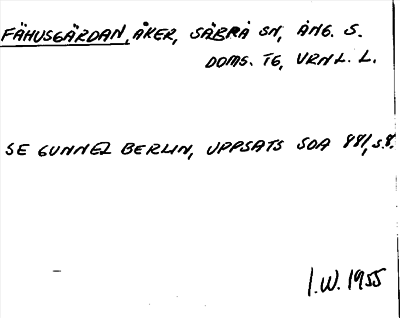 FÄHUSGÄRDAN, ÅKER, SÄBRÅ SN, ÅNG. S.
DOMS. TG, VRNL. L.
SE GUNNEL BERLIN, UPPSATS SOA 881, s.8.
I.W. 1955